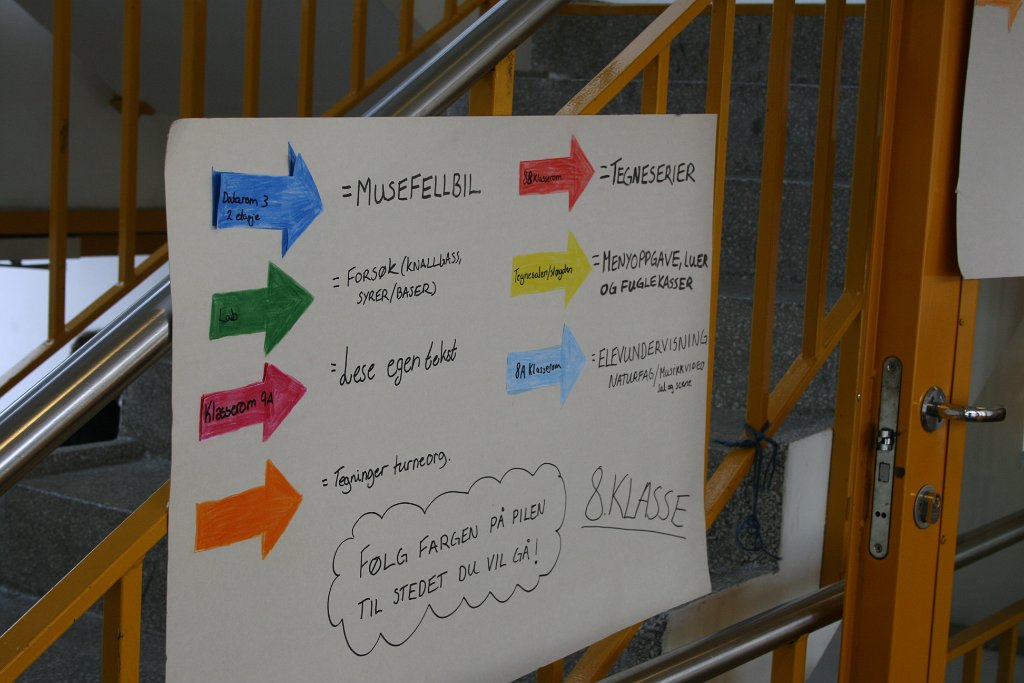 Datarom 3
2 etasje
= MUSEFELLBIL
Lab
= FORSØK (KNALLGASS,
SYRER/BASER)
Klasserom 9A
= Lese egen tekst
= Tegninger turneorg.
8B Klasserom
= TEGNESERIER
Tegnesalen/sløyden
= MENYOPPGAVE, LUER
OG FUGLEKASSER
8A Klasserom
= ELEVUNDERVISNING
NATURFAG/MUSIKKVIDEO
Sal og scene
FØLG FARGEN PÅ PILEN
TIL STEDET DU VIL GÅ!
8. KLASSE